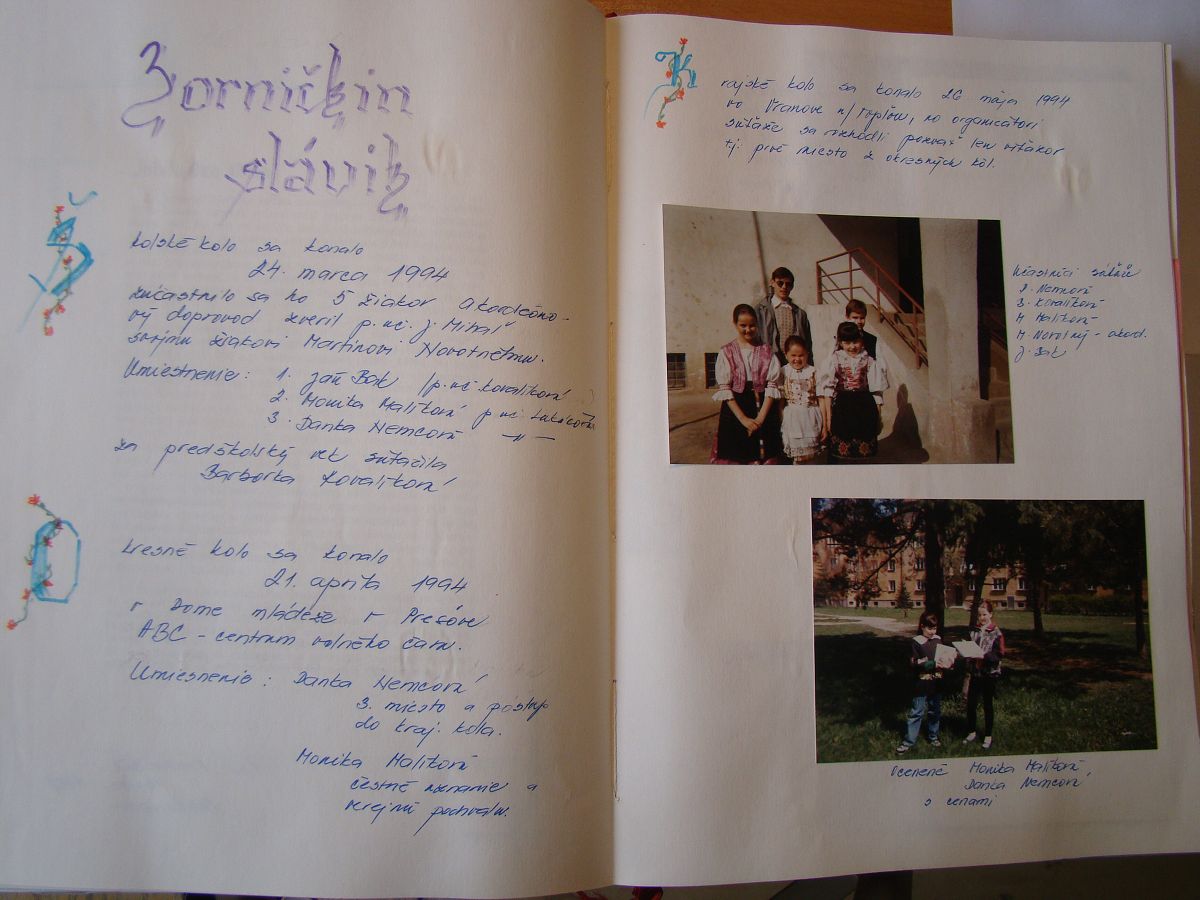 Zorničkin
slávik
Školské kolo sa konalo
24. marca 1994
zúčastnilo sa ho 5 žiakov Akordeóno-
vý doprovod zveril p. uč. J. Mihaľ
svojmu žiakovi Martinovi Novotnému.
Umiestnenie: 1. Ján Bak /p. uč. Kovalíková
2. Monika Malíková p. uč.
3. Danka Nemcová —„—
za predškolský vek súťažila
Barborka Kovalíková
Okresné kolo sa konalo
21. apríla 1994
v Dome mládeže v Prešove
ABC - centrum voľného času.
Umiesnenie: Danka Nemcová
3. miesto a postup
do kraj. kola.
Monika Malíková
čestné uznanie a
verejnú pochvalu.
Krajské kolo sa konalo 26 mája 1994
vo Vranove n/Topľou, no organizátori
súťaže sa rozhodli pozvať len víťazov
tj. prvé miesto z okresných kôl.
Účastníci súťaže
D. Nemcová
B. Kovalíková
M Malíková
M. Novotný - akord.
J. Bak
Ocenené Monika Malíková,
Danka Nemcová
s cenami